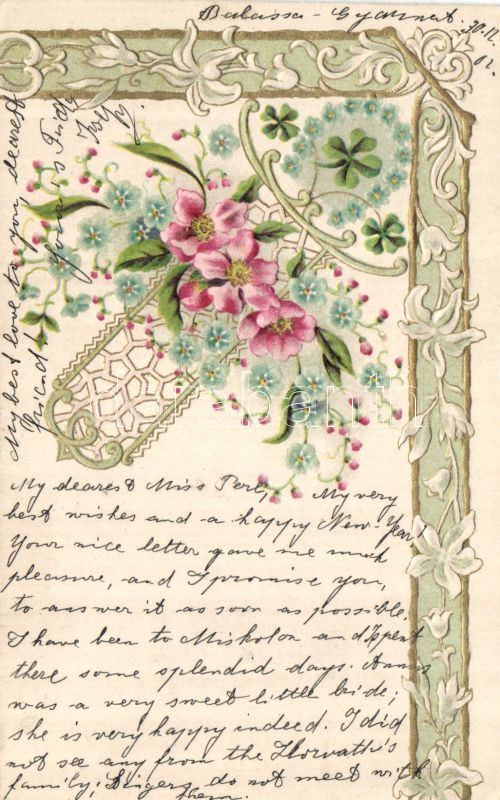 Balassa-Gyarmat. 30.12.
02.
My dearest Miss Perl, My very
best wishes and a happy New-Year!
Your nice letter gave me much
pleasure, and I promise you,
to answer it as soon as possible.
I have been to Miskolon and I spent
there some splendid days. Annus
was a very sweet little bride;
she is very happy indeed. I did
not see any from the Horvath's
family; Singers do not meet with
them.
My best love to you dearest
friend
Your's truly